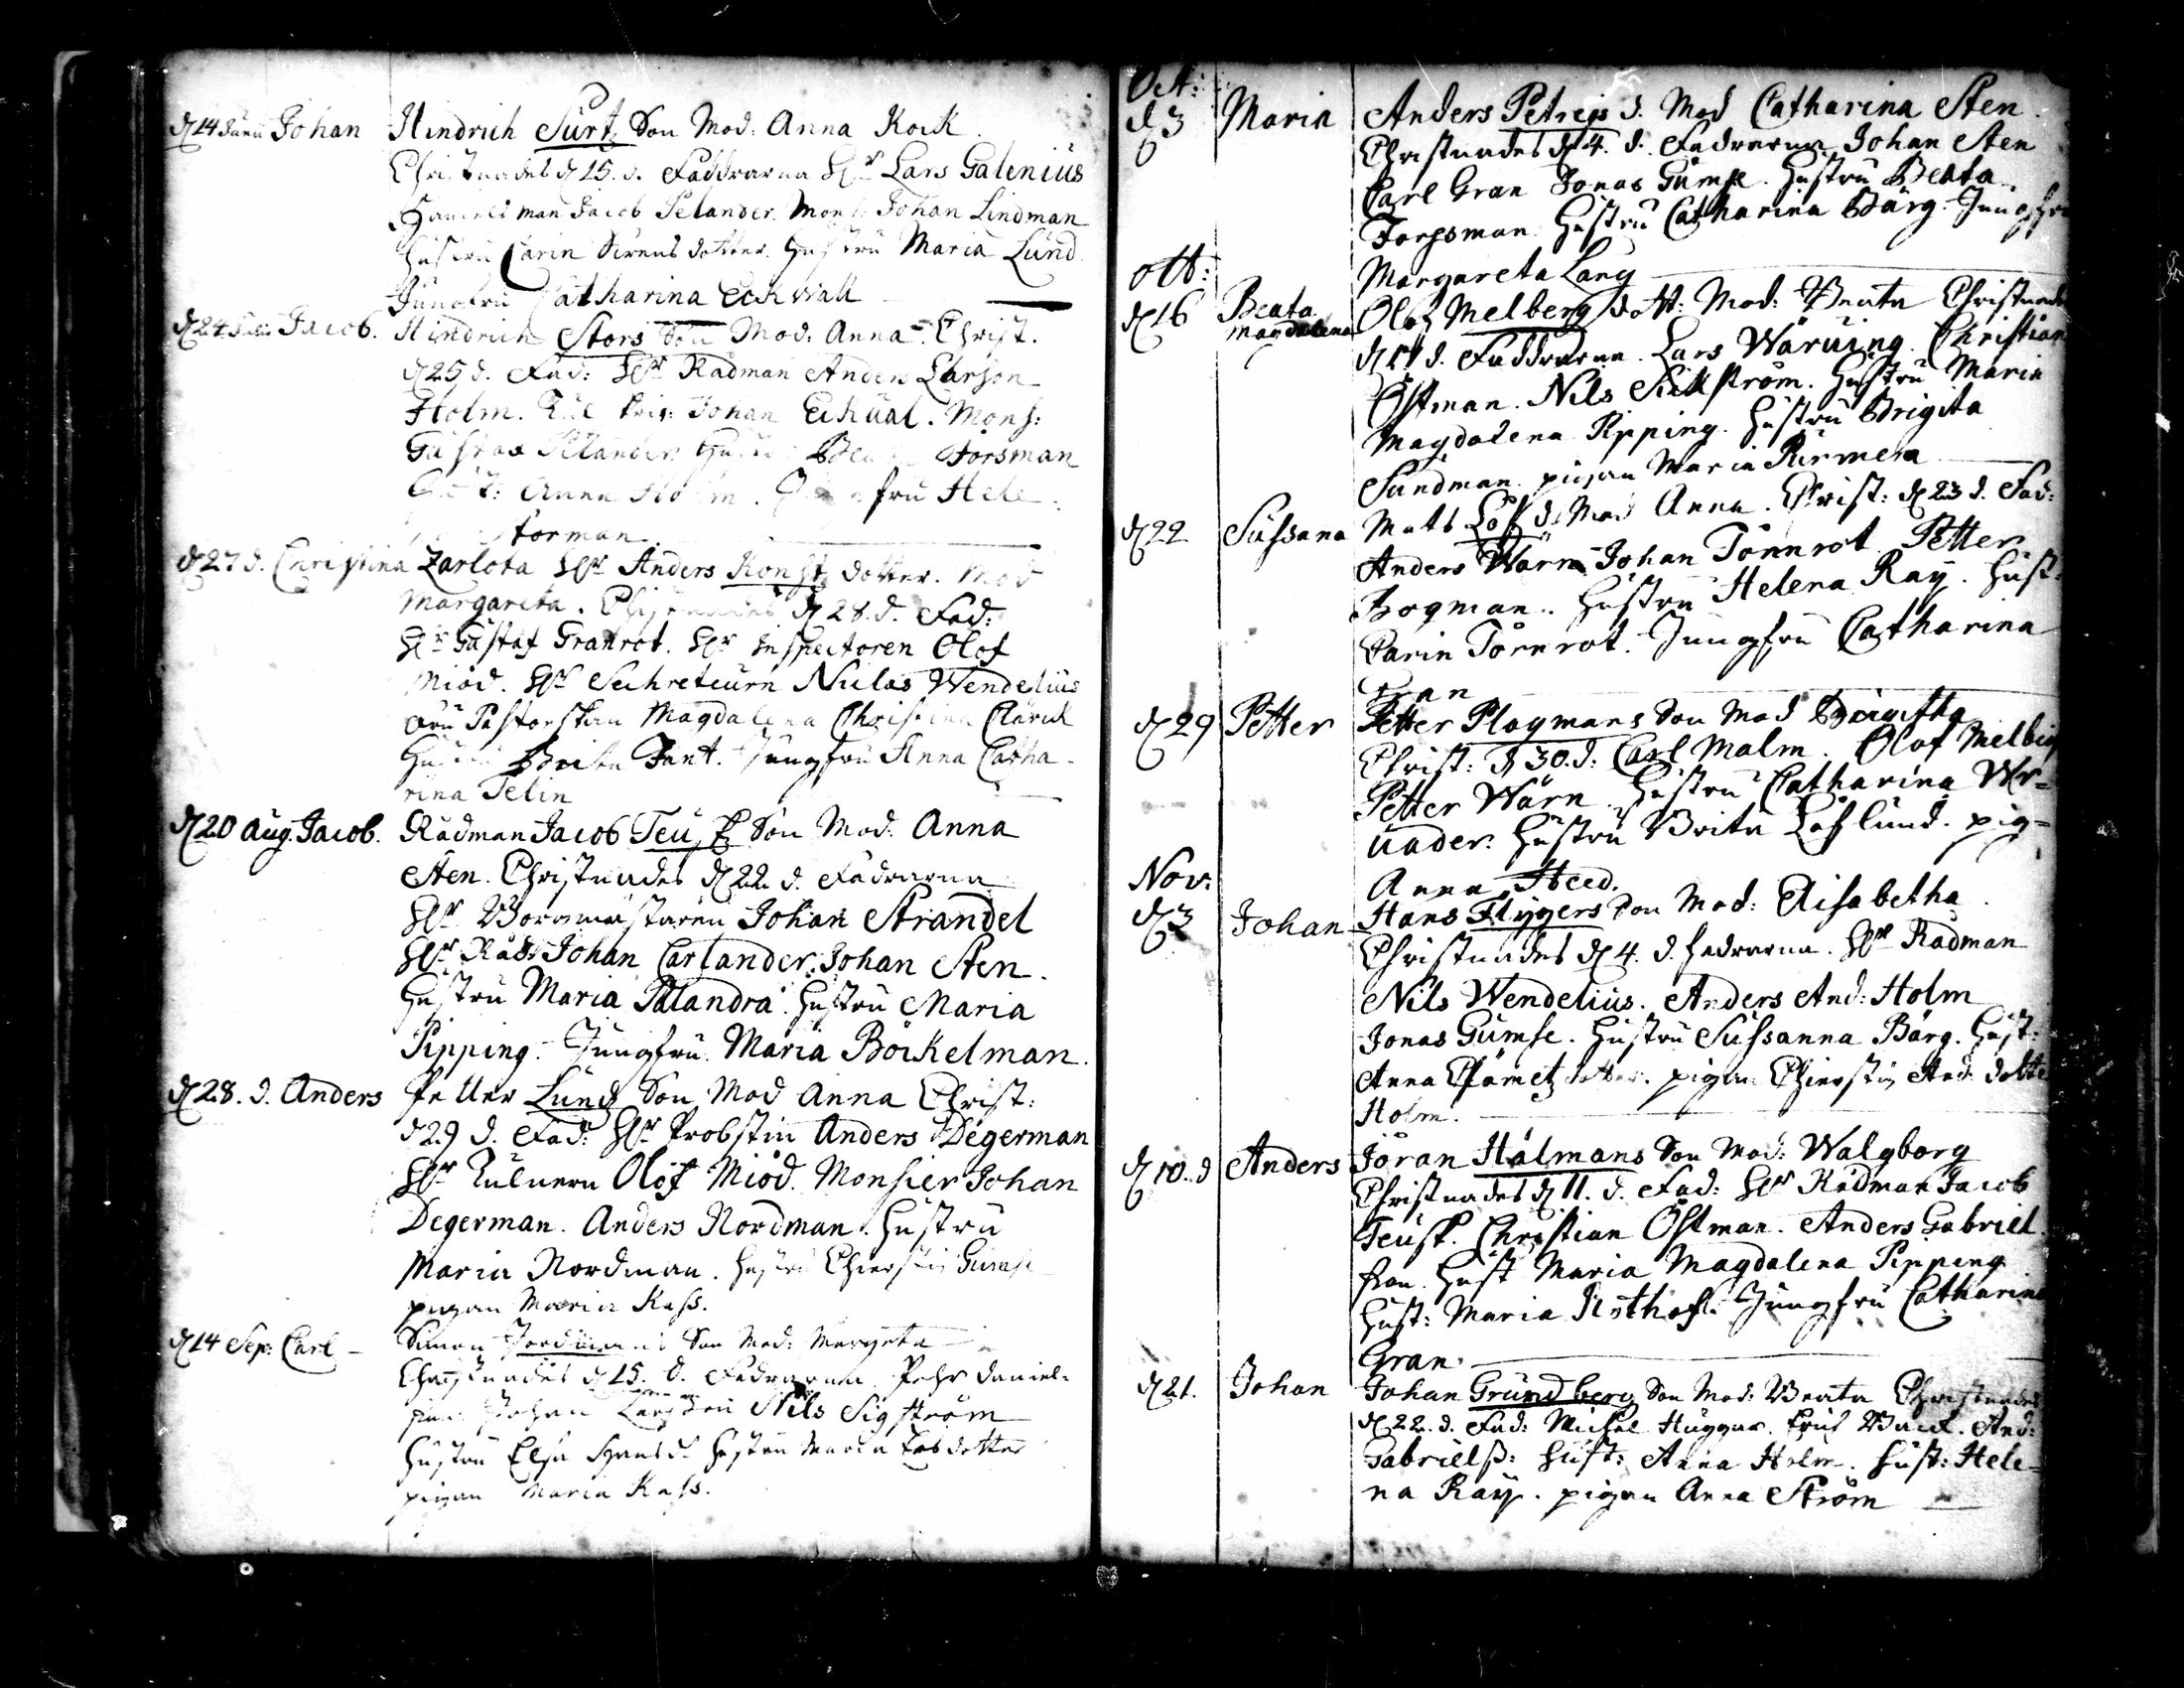 d 14 Junii Johan Hindrich Surk Son Mod: Anna Kock.
Christnades d 15. d. Faddrarna Hr Lars Galenius
man Jacob Pelander. Mons: Johan Lindman
hustru Carin dotter. Hustru Maria Lund
Jungfru Catharina Eckwall
d 24 Jacob. Hindrich Stors Son Mod: Anna. Christ.
d 25 d. Fad: Hr Rådman Anders Larson
Holm. Johan Eckual. Mons:
Gustaf Pelander. Forsman
Anna Holm. Jungfru Hele
Storman
d 27 d. Christina Zarlota Hr Anders dotter. Mod
Margareta. Christnades d 28. d. Fad:
Hr Gustaf Granrot. Hr Inspectoren Olof
Miöd. Hr Sechreteurn Niclas Wendelius
Fru Pastorskan Magdalena Christina
Fant. Jungfru Anna Catha-
rina Telin
d 20 Aug. Jacob. Rådman Jacob Teusk Son Mod: Anna
Sten. Christnades d 22 d. Fadrarna
Hr Borgmästaren Johan Strandel
Hr Råd: Johan Carlander. Johan Sten.
Hustru Maria Palandra. hustru Maria
Pipping. Jungfru Maria Böckelman.
d 28. d. Anders Petter Lund Son Mod Anna Christ:
d 29 d. Fad: Hr Probstin Anders Degerman
Hr Tulnern Olof Miöd. Monsier Johan
Degerman. Anders Nordman. hustru
Maria Nordman. hustru Chierstin Gumse
pigan Maria Kass.
d 14 Sep: Carl Simon Son Mod: Margeta
Christnades d 15. d. Fadrarna. Pehr Daniel-
son Johan Nils Sigström
hustru Elsa hustru dotter
pigan Maria Kass.
Oct:
d 3 Maria Anders Petrejs d. Mod Catharina Sten.
Christnades d 4. d. Fadrarna Johan Sten
Carl Gran Jonas Gumse. hustru Beata
Forssman. hustru Catharina Bärg. Jungfru
Margareta Lang
ott:
d 16 Beata Magdalena Olof Melberg dott: Mod: Beata Christnades
d 17 d. Faddrarna. Lars Wäruing. Christian
Östman. Nils Sickström. hustru Maria
Magdalena Pipping. hustru Brigita
Sundman. pigan Maria
d 22 Sussana Matts Löf d. Mod Anna. Christ: d 23 d. Fad:
Anders Wärn Johan Törnrot Petter
Bogman. hustru Helena Raij. hust:
Carin Törnrot. Jungfru Catharina
Gran
d 29 Petter Petter Plagmans Son Mod Birgitta
Christ: d 30. d: Carl Malm. Olof Melbig
Petter Wärn. Hustru Catharina Wr-
uader. hustru Brita Löflund. pig-
Anna Heed.
Nov:
d 3 Johan Hans Flygers Son Mod: Elisabetha.
Christnades d 4. d. fadrarna. Hr Rådman
Nils Wendelius. Anders And: Holm
Jonas Gumse. hustru Sussanna Bärg. hust:
Anna dotter. pigan Chierstin And: dotter
Holm.
d 10. d Anders Jöran Hålmans Son Mod: Walgborg
Christnades d 11. d. Fad: Hr Rådman Jacob
Teusk. Christian Östman. Anders Gabriel
son. hust Maria Magdalena Pipping
hust: Maria Justhof. Jungfru Catharina
Gran.
d 21. Johan Johan Grundberg Son Mod: Beata Christnades
d 22. d. Fad: Michel Huggar. Erich And:
Gabrielss: hust: Anna Holm. hust: Hele-
na Raij. pigan Anna Ström